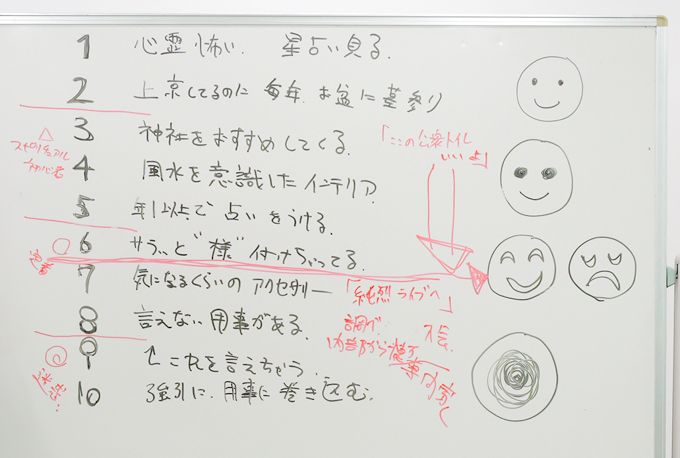 1 心霊怖い. 星占い見る.
2 上京してるのに 毎年 お盆に墓参り
3 神社をおすすめしてくる.
△ スピリチュアル 初心者
「ここの公衆トイレ いいよ」
4 風水を意識したインテリア.
5 年1以上で占いをうける.
6 サラッと"様"付けちゃってる.
7 気になるくらいのアクセサリー
「純烈ライブへ」
8 言えない用事がある.
調べ.
9 ↑これを言えちゃう.
10 強引に.用事に巻き込む.